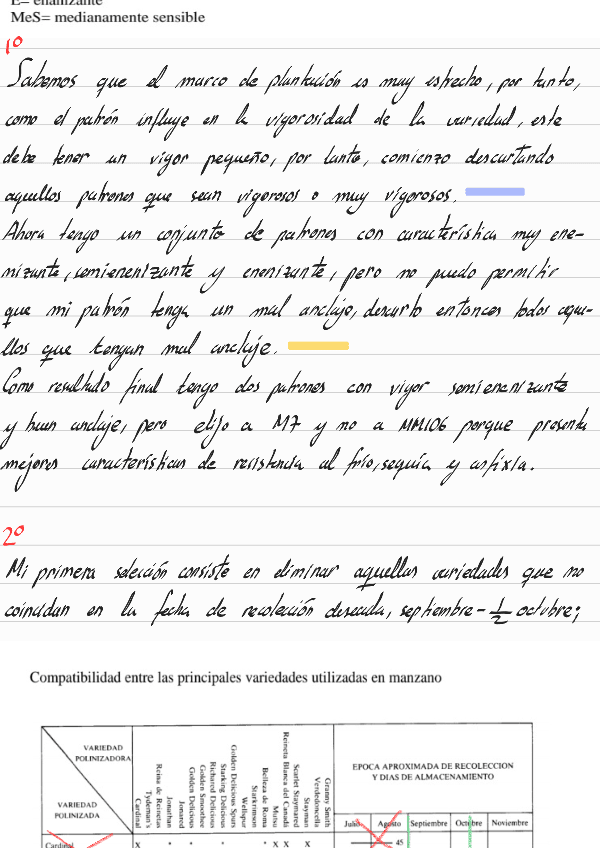 E= enanizante
MeS= medianamente sensible
1º
Sabemos que el marco de plantación es muy estrecho, por tanto,
como el patrón influye en la vigorosidad de la variedad, este
debe tener un vigor pequeño, por tanto, comienzo descartando
aquellos patrones que sean vigorosos o muy vigorosos.
Ahora tengo un conjunto de patrones con característica muy ene-
nizante, semienenizante y enenizante, pero no puedo permitir
que mi patrón tenga un mal anclaje, descarto entonces todos aque-
llos que tengan mal anclaje.
Como resultado final tengo dos patrones con vigor semienenizante
y buen anclaje, pero elijo a M7 y no a MM106 porque presenta
mejores características de resistencia al frío, sequía y asfixia.
2º
Mi primera selección consiste en eliminar aquellas variedades que no
coincidan en la fecha de recolección deseada, septiembre - 1/2 octubre;
Compatibilidad entre las principales variedades utilizadas en manzano
VARIEDAD
POLINIZADORA
VARIEDAD
POLINIZADA
Cardinal
Tydeman's
Reina de Reinetas
Jonathan
Jonared
Golden Delicious
Golden Smoothee
Richared Delicious
Starking Delicious
Golden Delicious Spurs
Wellspur
Starkrimson
Belleza de Roma
Mutsu
Reineta Blanca del Canadá
Scarlet Staymared
Stayman
Verdedoncella
Granny Smith
EPOCA APROXIMADA DE RECOLECCION
Y DIAS DE ALMACENAMIENTO
Julio Agosto Septiembre Octubre Noviembre
Cardinal X * * * * * X X X 45